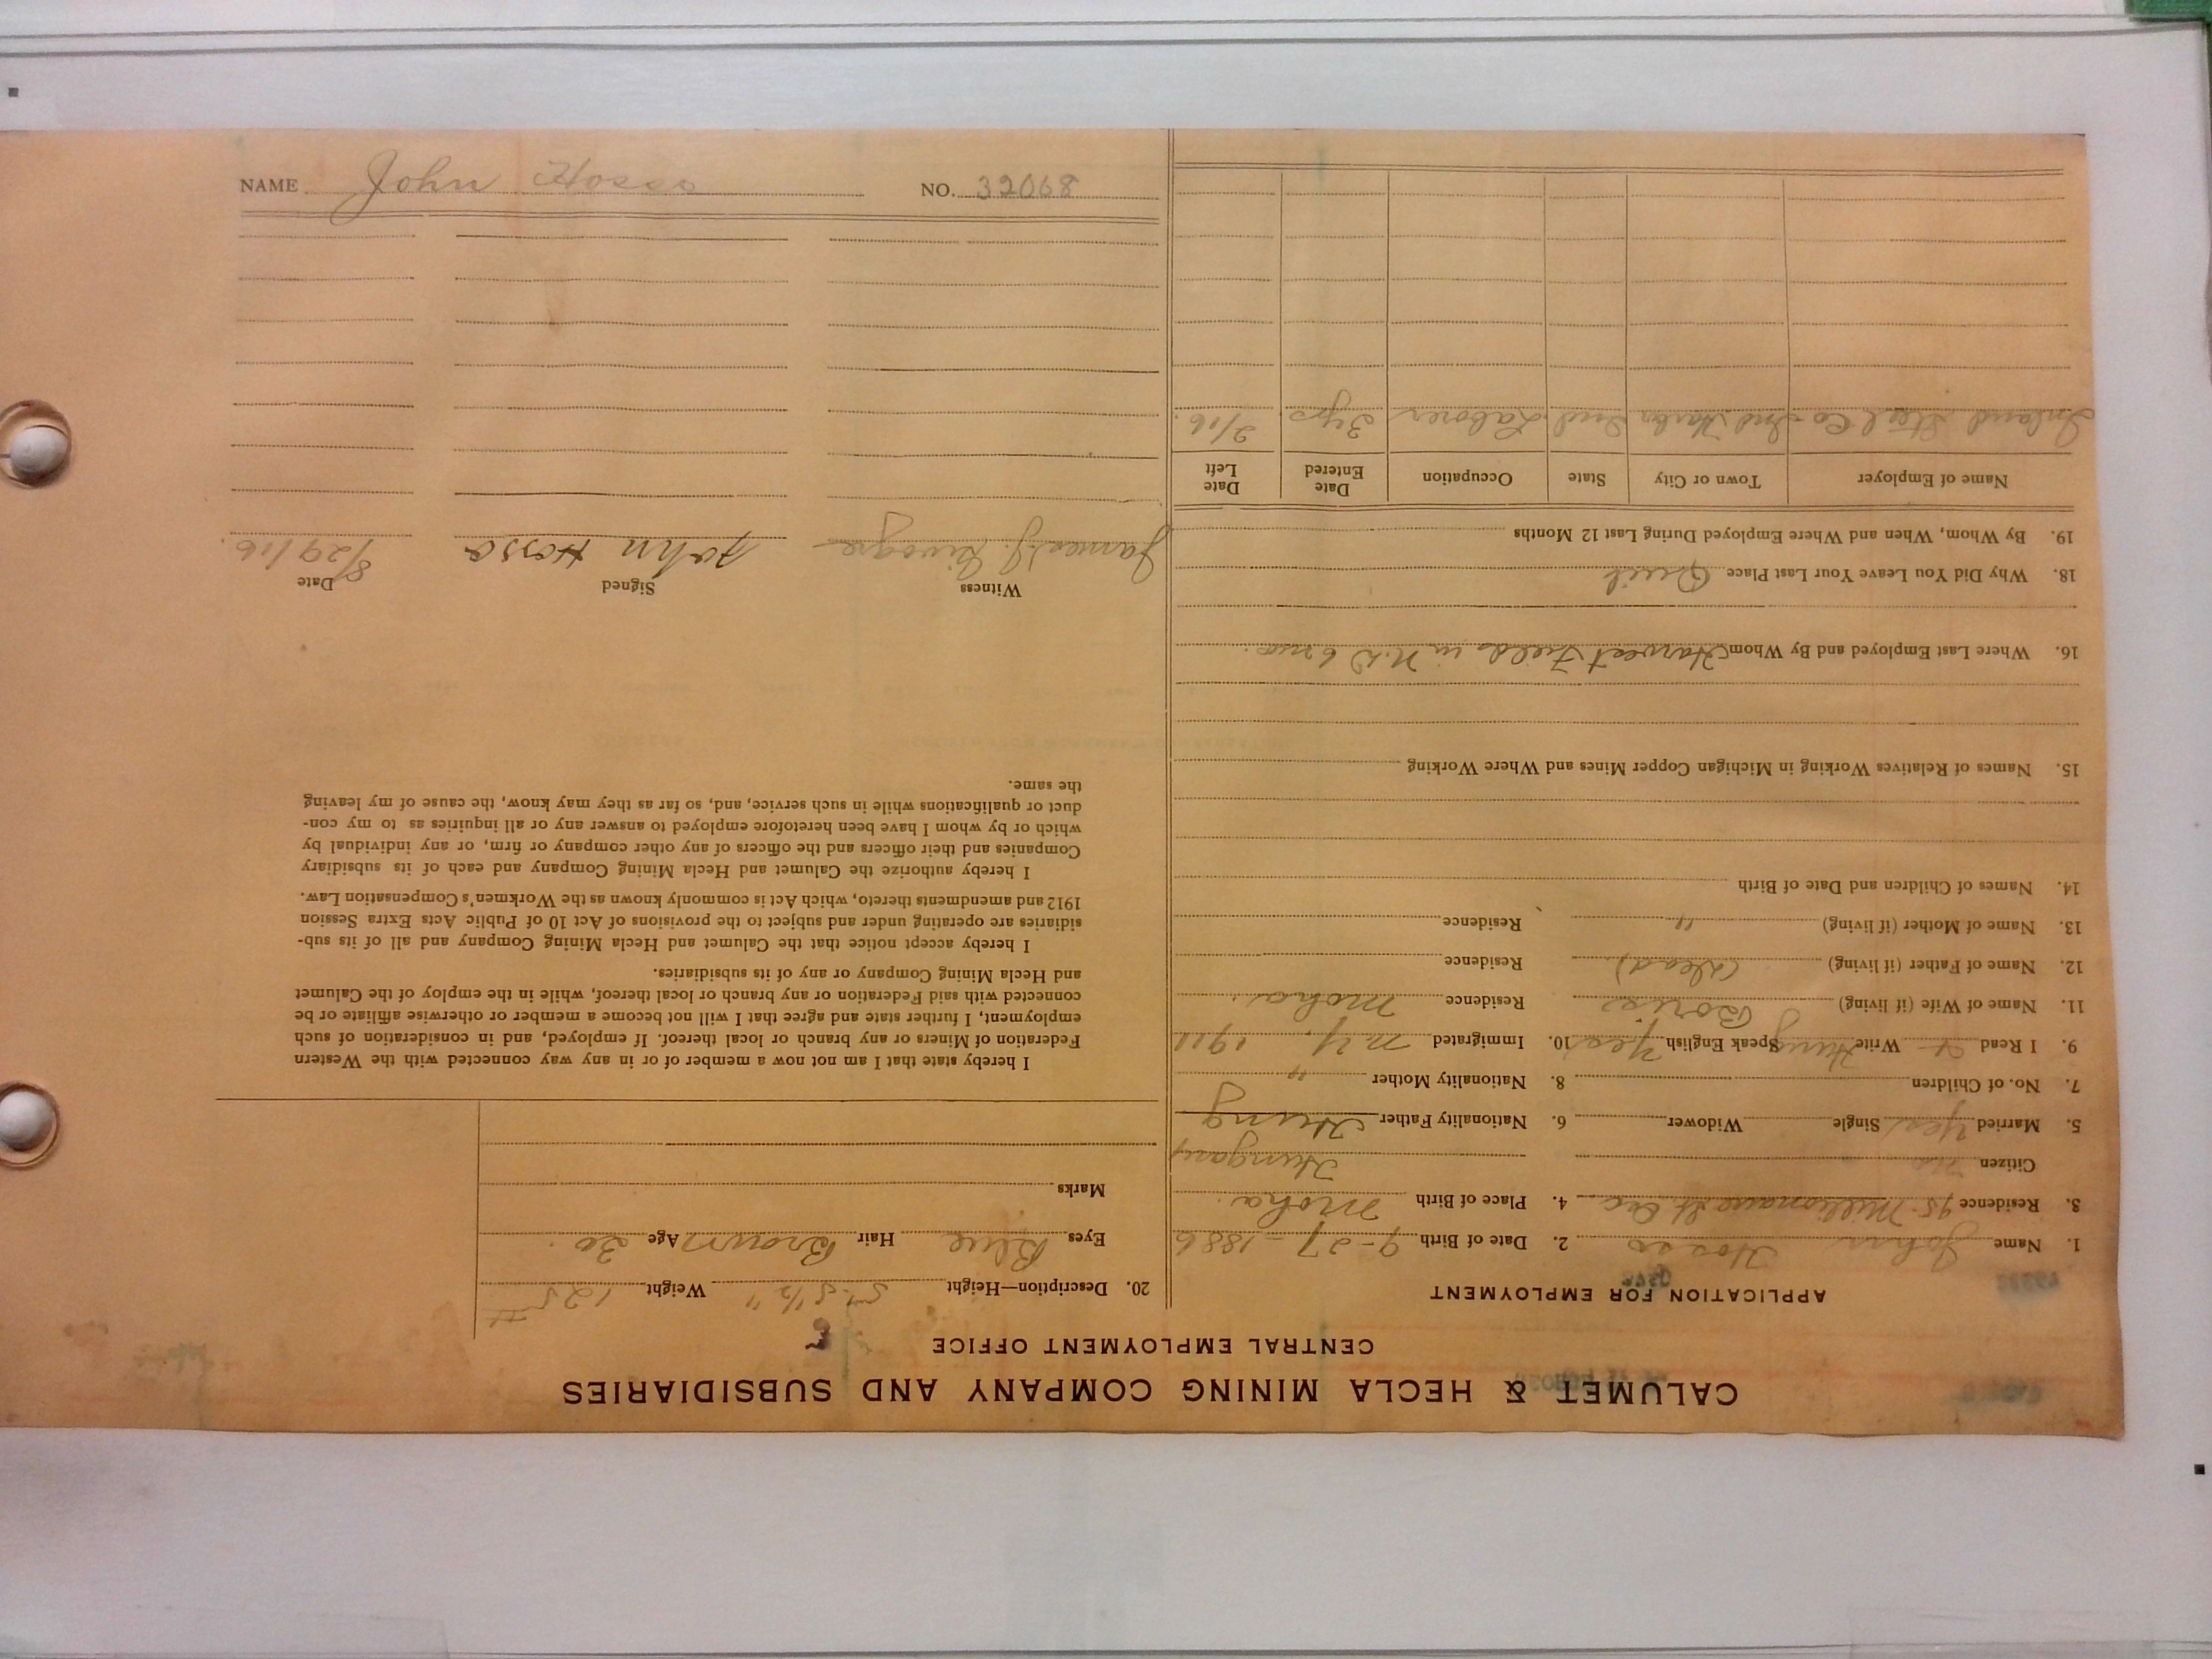 CALUMET & HECLA MINING COMPANY AND SUBSIDIARIES
CENTRAL EMPLOYMENT OFFICE
APPLICATION FOR EMPLOYMENT
1. Name John Hosso 2. Date of Birth 9-27-1886
3. Residence 95 Millionaire St 4. Place of Birth Moha
Citizen no Hungary
5. Married Yes Single Widower 6. Nationality Father Hung
7. No. of Children 8. Nationality Mother "
9. I Read & Write Hung Speak English Yes 10. Immigrated N.Y. 1911
11. Name of Wife (if living) Residence Moha.
12. Name of Father (if living) (dead) Residence
13. Name of Mother (if living) " Residence
14. Names of Children and Date of Birth
15. Names of Relatives Working in Michigan Copper Mines and Where Working
16. Where Last Employed and By Whom Harvest Fields in N.D 6 mo.
18. Why Did You Leave Your Last Place Quit
19. By Whom, When and Where Employed During Last 12 Months
Name of Employer Town or City State Occupation Date Entered Date Left
Inland Steel Co Ind Harbor Ind Laborer 3 yrs 2/16.
20. Description—Height 5'-5 1/2" Weight 125 #
Eyes Blue Hair Brown Age 30.
Marks
I hereby state that I am not now a member of or in any way connected with the Western
Federation of Miners or any branch or local thereof. If employed, and in consideration of such
employment, I further state and agree that I will not become a member or otherwise affiliate or be
connected with said Federation or any branch or local thereof, while in the employ of the Calumet
and Hecla Mining Company or any of its subsidiaries.
I hereby accept notice that the Calumet and Hecla Mining Company and all of its sub-
sidiaries are operating under and subject to the provisions of Act 10 of Public Acts Extra Session
1912 and amendments thereto, which Act is commonly known as the Workmen's Compensation Law.
I hereby authorize the Calumet and Hecla Mining Company and each of its subsidiary
Companies and their officers and the officers of any other company or firm, or any individual by
which or by whom I have been heretofore employed to answer any or all inquiries as to my con-
duct or qualifications while in such service, and, so far as they may know, the cause of my leaving
the same.
Witness Signed Date
James J. John Hosso 8/29/16.
NAME John Hosso NO. 32068